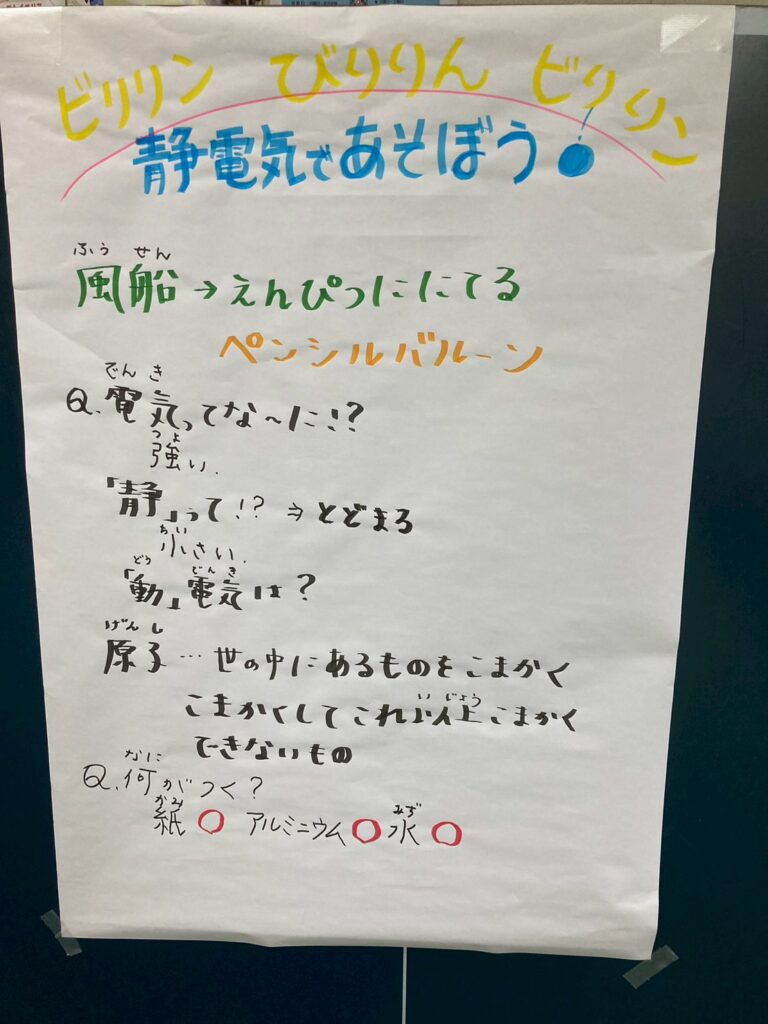 ビリリン びりりん ビリリン
静電気であそぼう!
ふうせん
風船→えんぴつににてる
ペンシルバルーン
でんき
Q.電気ってな〜に!?
つよ
強い.
「静」って!?⇒とどまる
ちい
小さい.
どう でんき
「動」電気は?
げんし
原子…世の中にあるものをこまかく
いじょう
こまかくしてこれ以上こまかく
できないもの
なに
Q.何がつく?
かみ みず
紙○ アルミニウム○ 水○